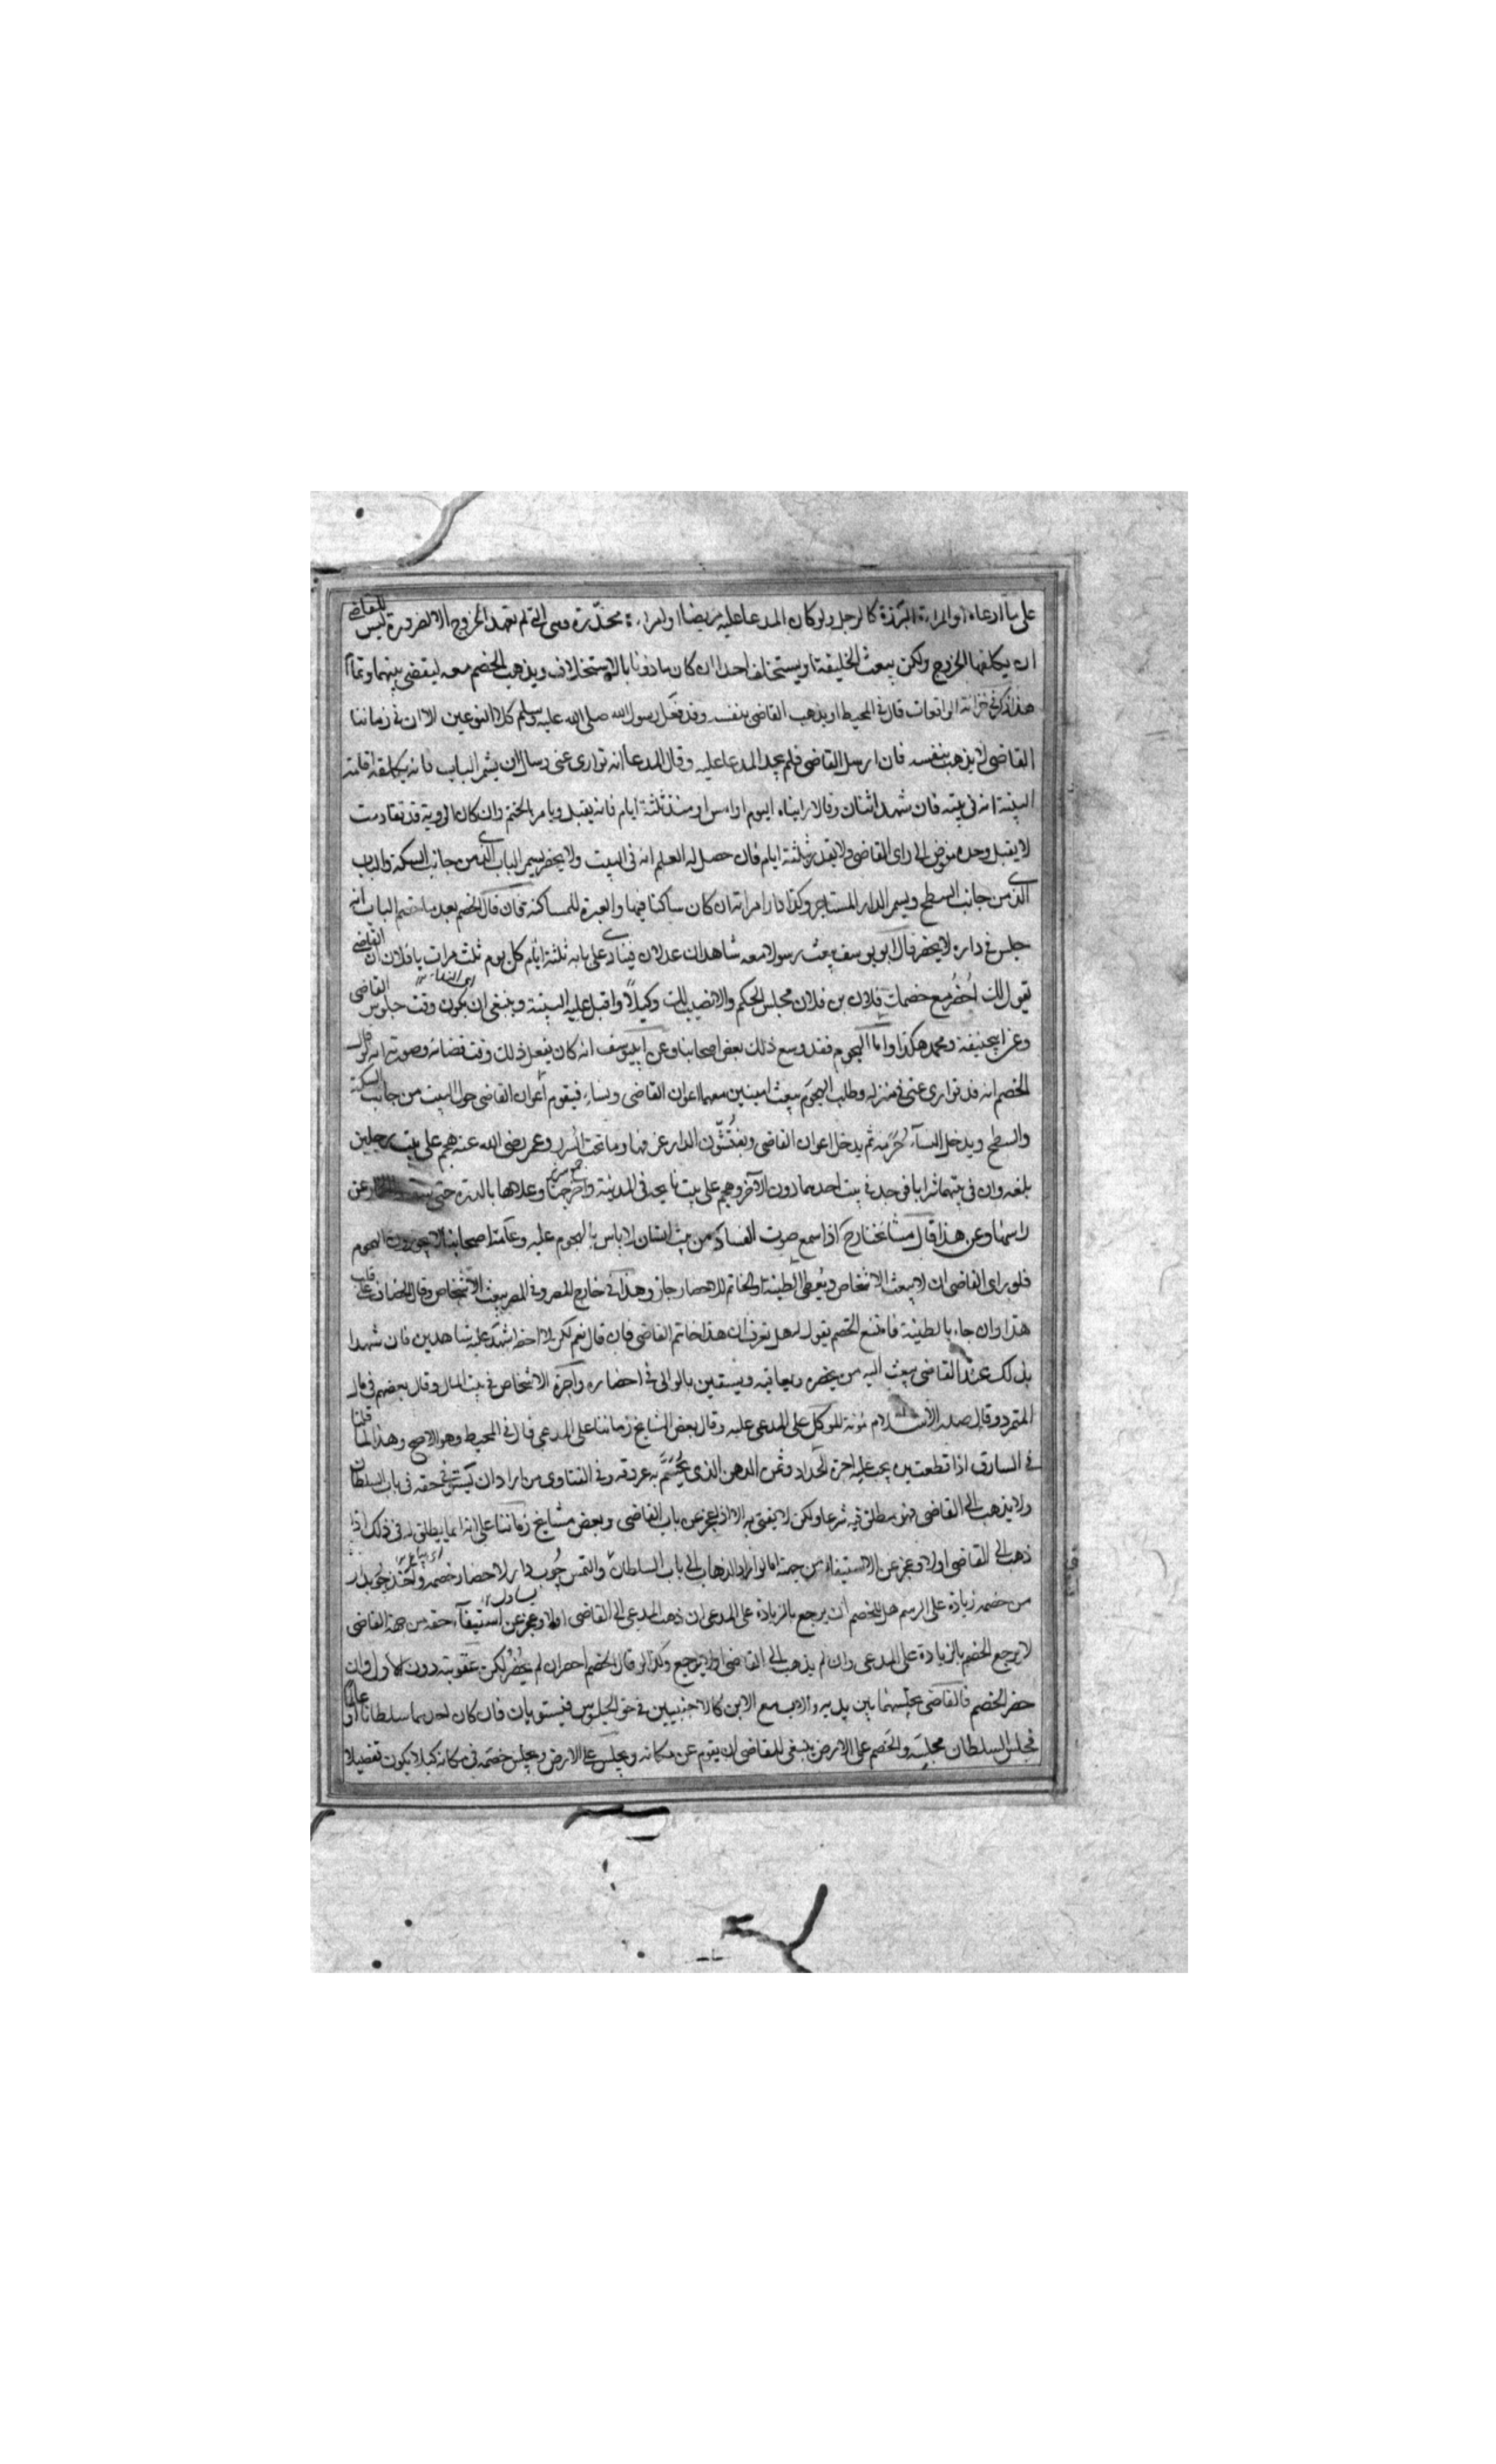 على ما ادعاه او المراءة البرزة كالرجل ولو كان المدعا عليه مريضا او امراءة مخدّرة وهى التى لم تعهد الخروج الا لضرورة ليس للقاضى
ان يكلفها الخروج ولكن يبعث الخليفة او يستخلف احدا ان كان ماذونا بالاستخلاف ويذهب الخصم معه ليقضى بينهما وتمام
هذا ذكر فى خزانة الواقعات قال فى المحيط او يذهب القاضى بنفسه وقد فعل رسول الله صلى الله عليه وسلم كلا النوعين الا ان فى زماننا
القاضى لا يذهب بنفسه فان ارسل القاضى فلم يجد المدعا عليه وقال المدعا انه توارى عنى وسال ان يسمر الباب فانه يكلفه اقامة
البينة انه فى بيته فان شهد اثنان وقالا رايناه اليوم او امس او منذ ثلثة ايام فانه يقبل ويامر بالختم وان كان الروية قد تقادمت
لا يقبل وحده مفوض الى راى القاضى ولا يقدر بثلثة ايام فان حصل له العلم انه فى البيت ولا يحضر يسمر الباب الذى من جانب السكة والباب
الذى من جانب السطح ويسمر الدار المستاجر وكذا دار امراته ان كان ساكنا فيها والعبرة للمساكنة فان قال الخصم بعد ما ختم الباب انه
جلس فى داره لا يحضر قال ابو يوسف يبعث رسولا معه شاهدان عدلان فينادى على بابه ثلثة ايام كل يوم ثلث مرات يا فلان ان القاضى
يقول لك احضر مع خصمك فلان بن فلان مجلس الحكم والا نصبت لك وكيلا واقبل عليه البينة وينبغى ان يكون وقت جلوس القاضى
وعن ابيحنيفة ومحمد هكذا واما الهجوم فقد وسع ذلك بعض اصحابنا وعن ابى يوسف انه كان يفعل ذلك وقت قضائه وصورته انه لو قال
الخصم انه قد توارى عنى فى منزله وطلب الهجوم يبعث امينين معهما اعوان القاضى ونساء فيقوم اعوان القاضى حول البيت من جانب السكة
والسطح ويدخل النساء حرمه ثم يدخل اعوان القاضى ويفتشون الدار غرفها وما تحت السرر وعمر رضى الله عنه هجم على بيت رجلين
بلغه وان فى بيتهما شرابا فوجد فى بيت احدهما دون الآخر وهجم على بيت نايحة فى المدينة واخرجها وعلاها بالدرة حتى سقط الخمار عن
راسها وعن هذا قال مشائخنا رح اذا سمع صوت الفساد من بيت انسان لا باس بالهجوم عليه وعامة اصحابنا لا يجوزون الهجوم
فلو راى القاضى ان لا يبعث الاشخاص ويعطى الطينة والخاتم للاحضار جاز وهذا فى خارج المصر وفى المصر يبعث الاشخاص وقال الخصاف على قلب
هذا وان جاء بالطينة فامتنع الخصم يقول له هل تعرف ان هذا خاتم القاضى فان قال نعم لكن لا احضر اشهد عليه شاهدين فان شهدا
بذلك عند القاضى يبعث اليه من يحضره ويعاقبه ويستعين بالوالى فى احضاره واجرة الاشخاص فى بيت المال وقال بعضهم فى مال
المتمرد وقال صدر الاسلام مؤنة الموكل على المدعى عليه وقال بعض المشايخ زماننا على المدعى قال فى المحيط وهو الاصح وهذا كما قلنا
فى السارق اذا قطعت يده يجب عليه اجرة الحداد وثمن الدهن الذى يحسم به عروقه وفى الفتاوى من اراد ان يستوفى حقه فى باب السلطان
ولا يذهب الى القاضى فهو مطلق فيه شرعا ولكن لا يفتى به الا اذا عجز عن باب القاضى وبعض مشايخ زماننا على انه انما يطلق له فى ذلك اذا
ذهب الى القاضى اولا وعجز عن الاستيفاء من جهته اما لو اراد الذهاب الى باب السلطان والتمس چوب دار لاحضار خصمه واخذ چوبدار
من خصمه زيادة على الرسم هل للخصم ان يرجع بالزيادة على المدعى ان ذهب المدعى الى القاضى اولا وعجز عن استيفآء حقه من جهة القاضى
لا يرجع الخصم بالزيادة على المدعى وان لم يذهب الى القاضى اولا يرجع وكذا لو قال الخصم احضر ان لم يحضر لكن عقوبته دون الاول وان
حضر الخصم فالقاضى يجلسهما بين يديه والاب مع الابن كالاجنبيين فى حق الجلوس فيستويان فان كان احدهما سلطانا او عالما
فجلس السلطان مجلسه والخصم على الارض ينبغى للقاضى ان يقوم عن مكانه ويجلس على الارض ويجلس خصمه فى مكانه كيلا يكون تفضيلا